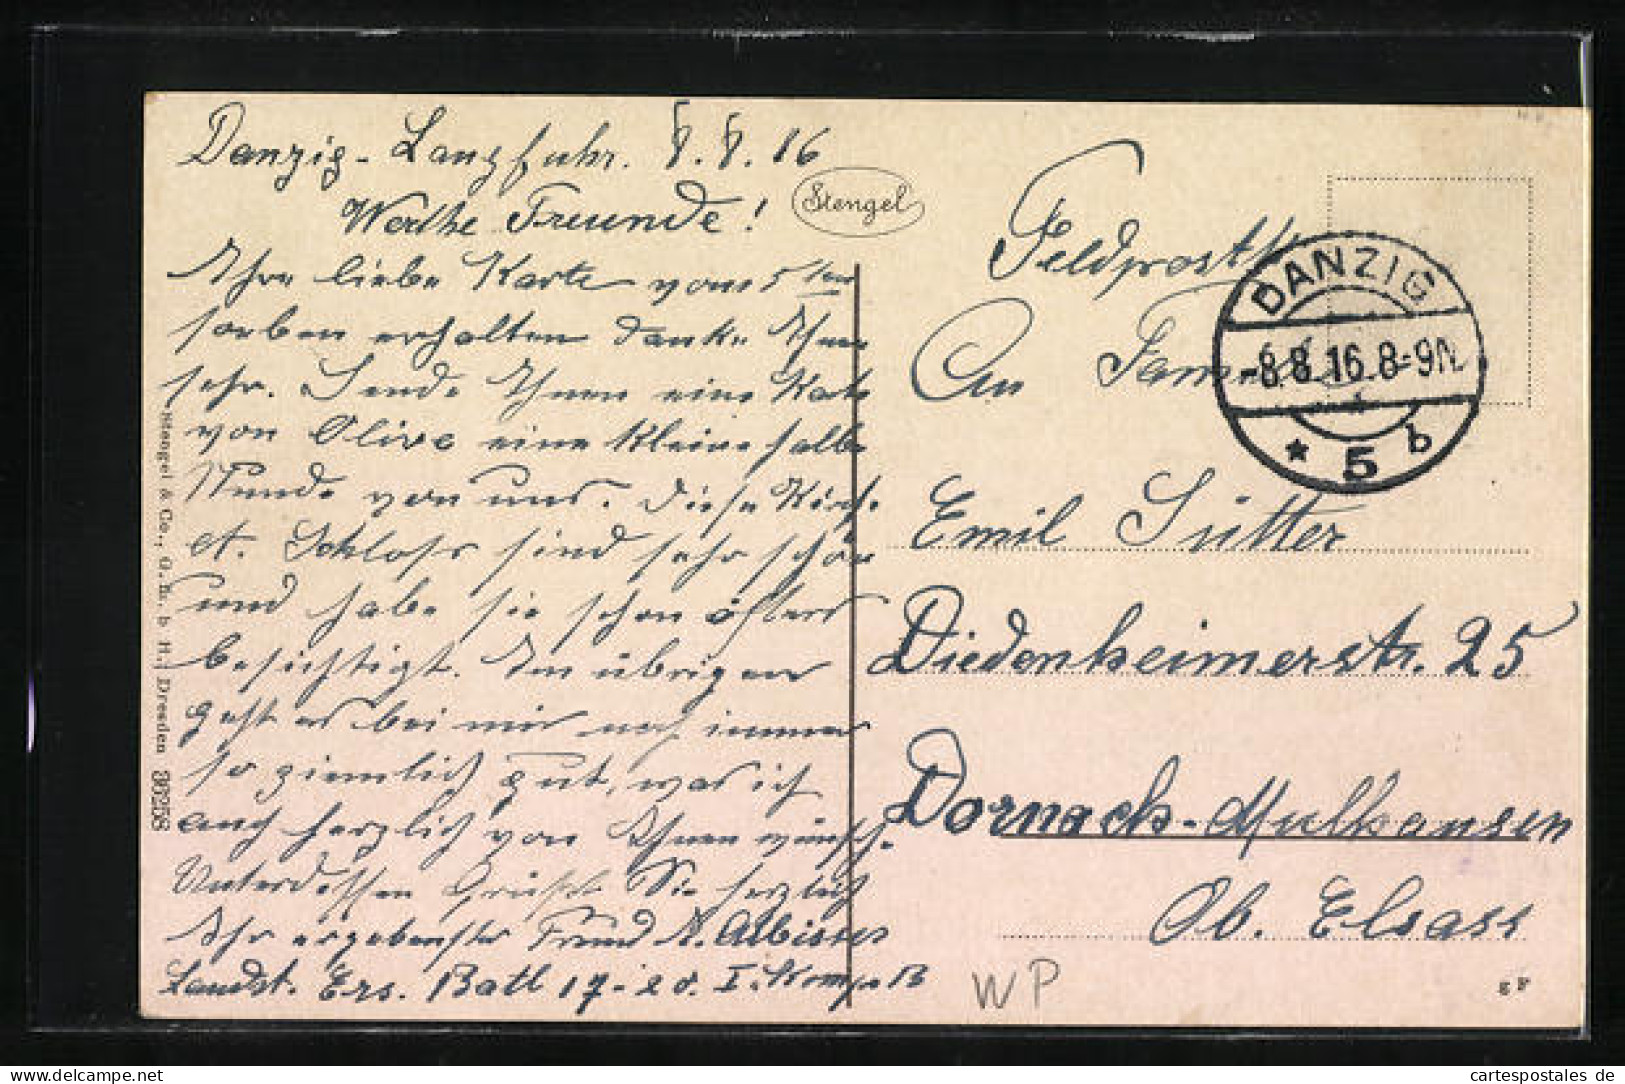 Danzig-Langfuhr. 8.8.16
Werthe Freunde!
Ihre liebe Karte vom 5ten
soeben erhalten danke Ihnen
sehr. Sende Ihnen eine Karte
von Olive eine kleine halbe
Stunde von uns. Diese Kirche
et. Schloss sind sehr schön
und habe sie schon öfters
besichtigt. Im übrigen
geht es bei mir noch immer
so ziemlich gut, was ich
auch herzlich von Ihnen wünsch.
Unterdessen Grüsst Sie herzlich
Ihr ergebenster Freund A. Albisus
Landst. Ers. Batl 17-20. I. Komp.
Stengel
Stengel & Co., G. m. b. H., Dresden 36258
Feldpost
DANZIG
-8.8.16.8-9N.
* 5 b
An Familie
Emil Sütter
Diedenheimerstr. 25
Dornach-Mulhausen
Ob. Elsass
WP
cartespostales de